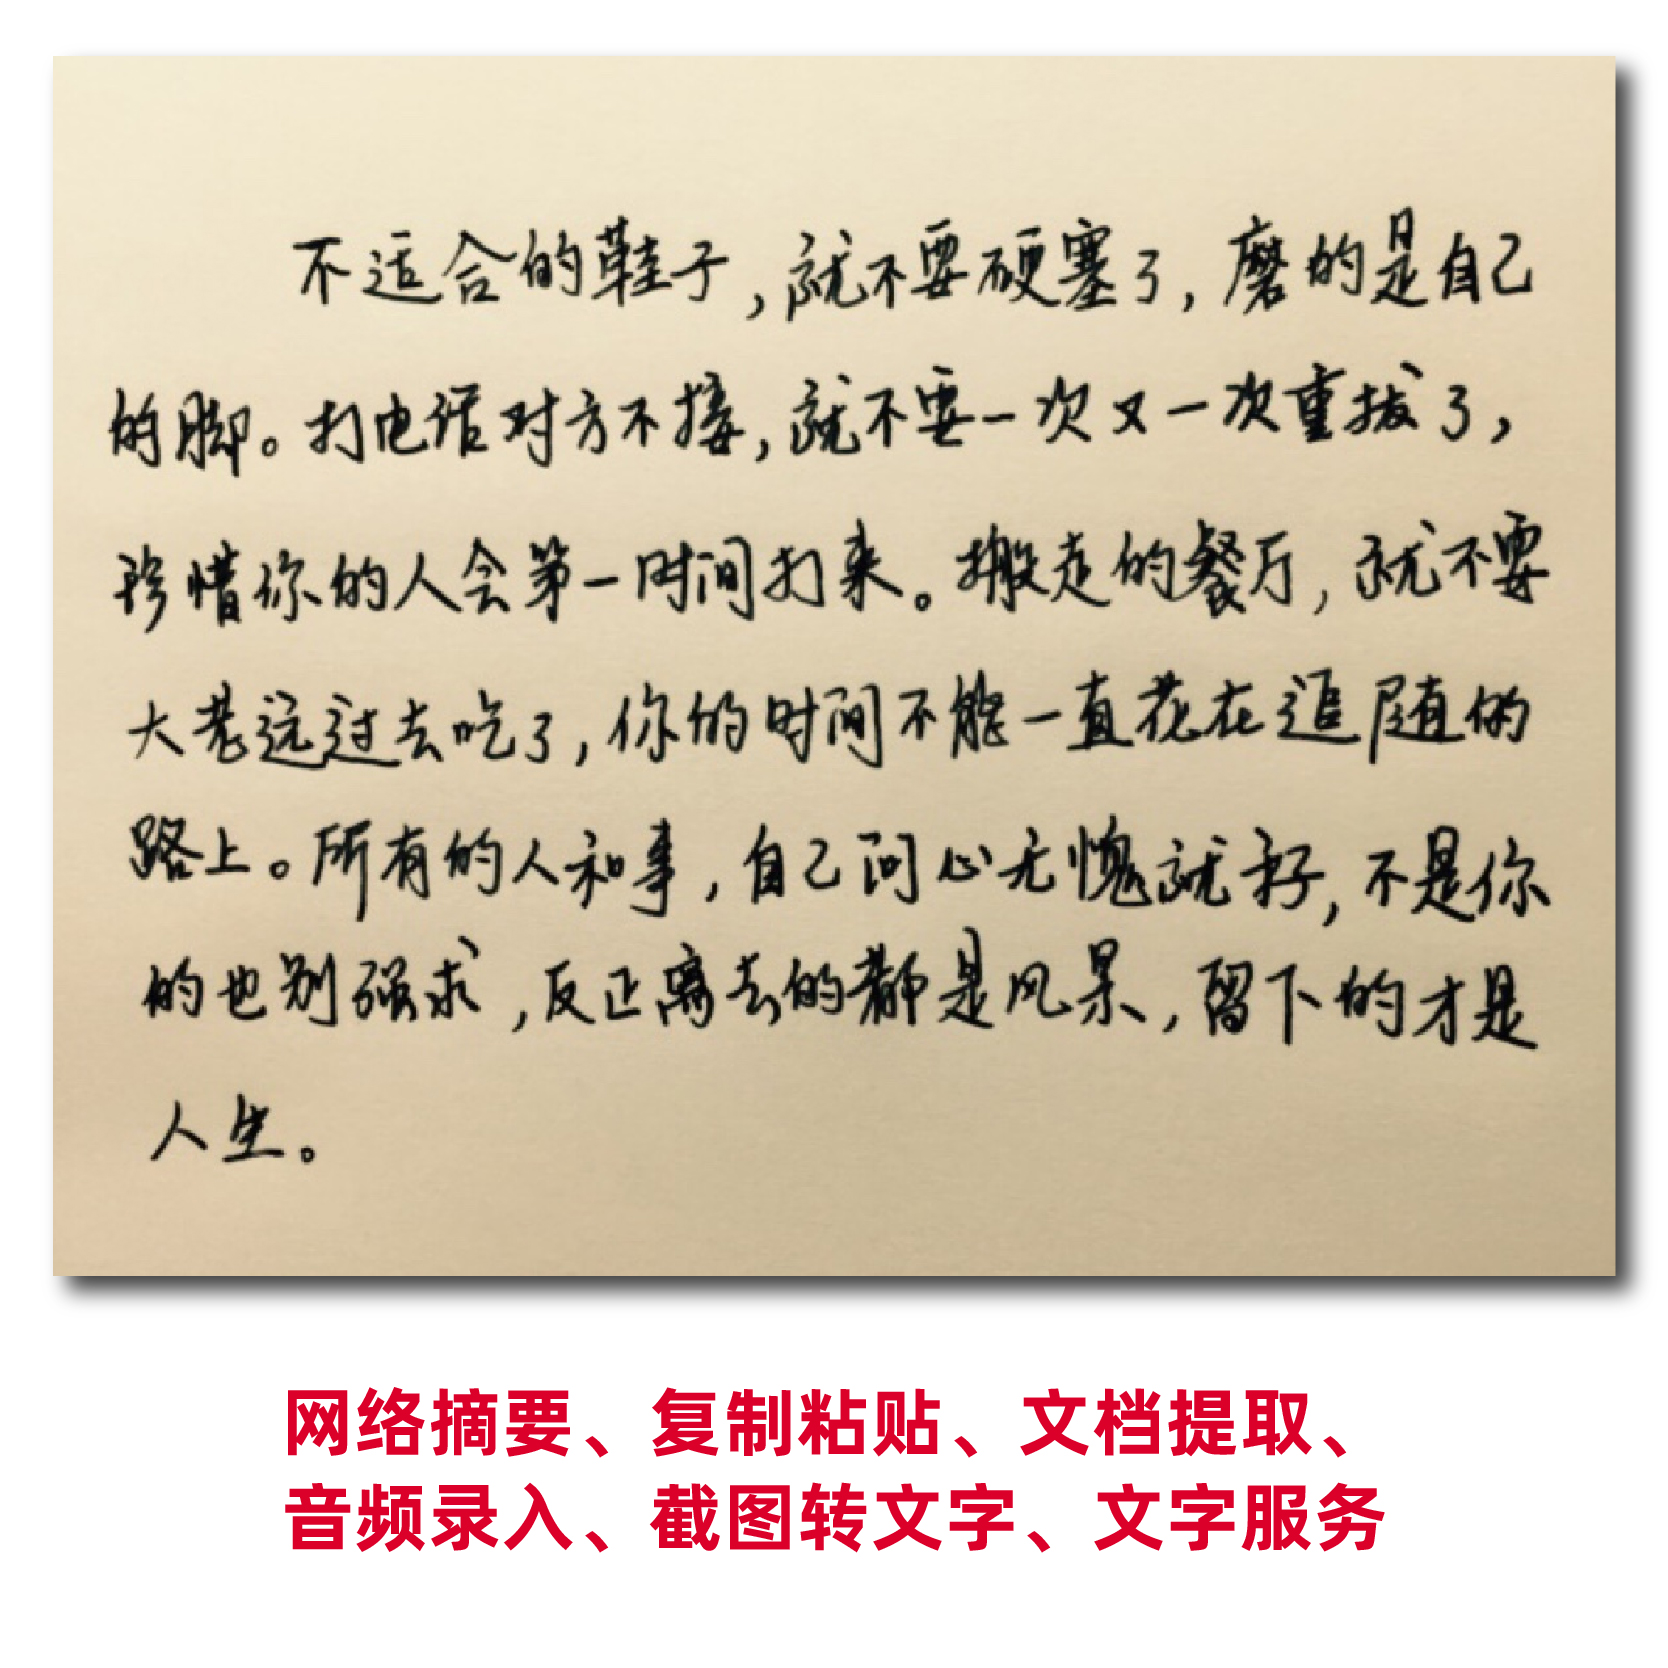 不适合的鞋子，就不要硬塞了，磨的是自己
的脚。打电话对方不接，就不要一次又一次重拔了，
珍惜你的人会第一时间打来。搬走的餐厅，就不要
大老远过去吃了，你的时间不能一直花在追随的
路上。所有的人和事，自己问心无愧就好，不是你
的也别强求，反正离去的都是风景，留下的才是
人生。
网络摘要、复制粘贴、文档提取、
音频录入、截图转文字、文字服务